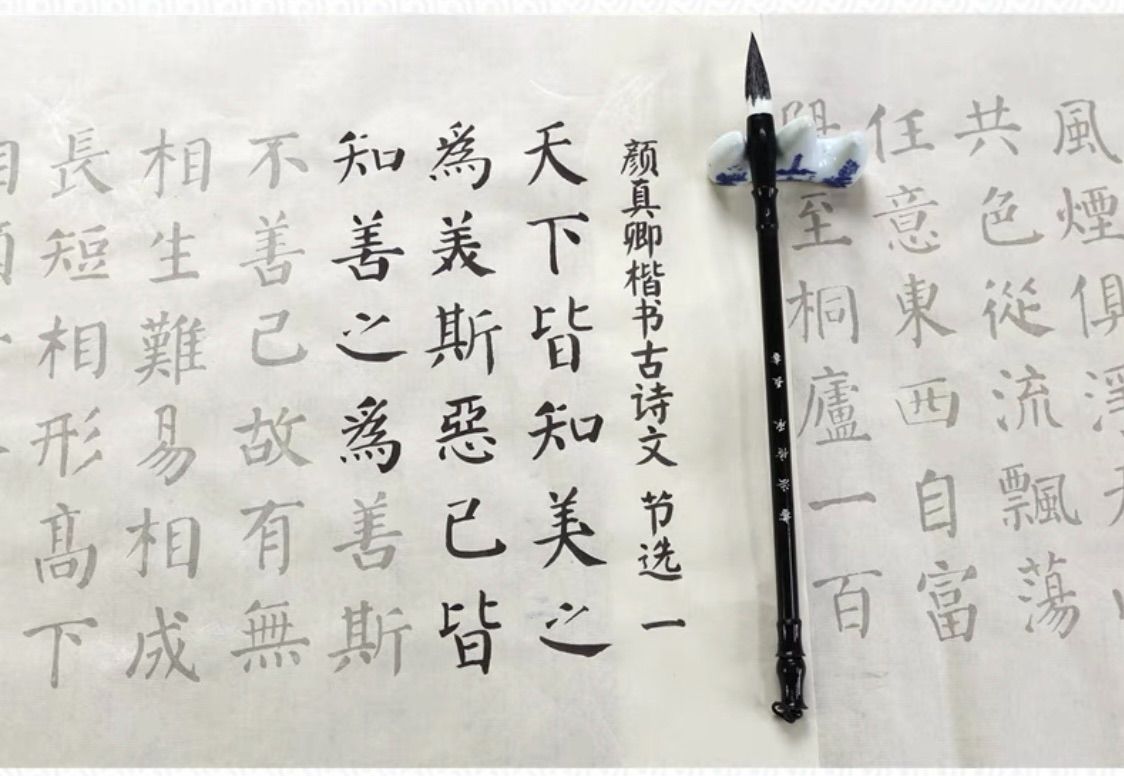 風煙俱淨
共色從流飄蕩
任意東西自富
至桐廬一百
颜真卿楷书古诗文 节选 一
天下皆知美之
為美斯惡已皆
知善之為善斯
不善已故有無
相生難易相成
長短相形髙下